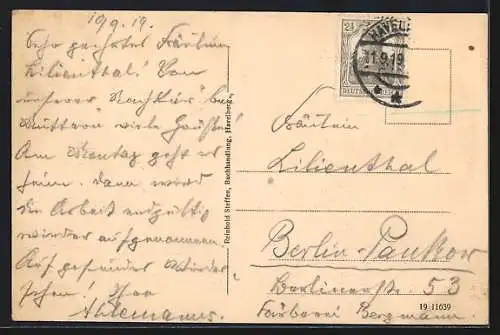 10/9. 19.
Sehr geehrtes Fräulein
Lilienthal! Von
unserer "Nachkur" bei
Muttern viele Grüße!
Am Montag geht es
heim. Dann wird
die Arbeit endgültig
wieder aufgenommen.
Auf gesundes Wieder-
sehen! Ihre
Reinhold Steffen, Buchhandlung, Havelberg.
2½
DEUTSCHES REICH
HAVELB
11.9.19
Fräulein
Lilienthal
Berlin-Pankow
Berlinerstr. 53
Färberei Bergmann.
19 11639